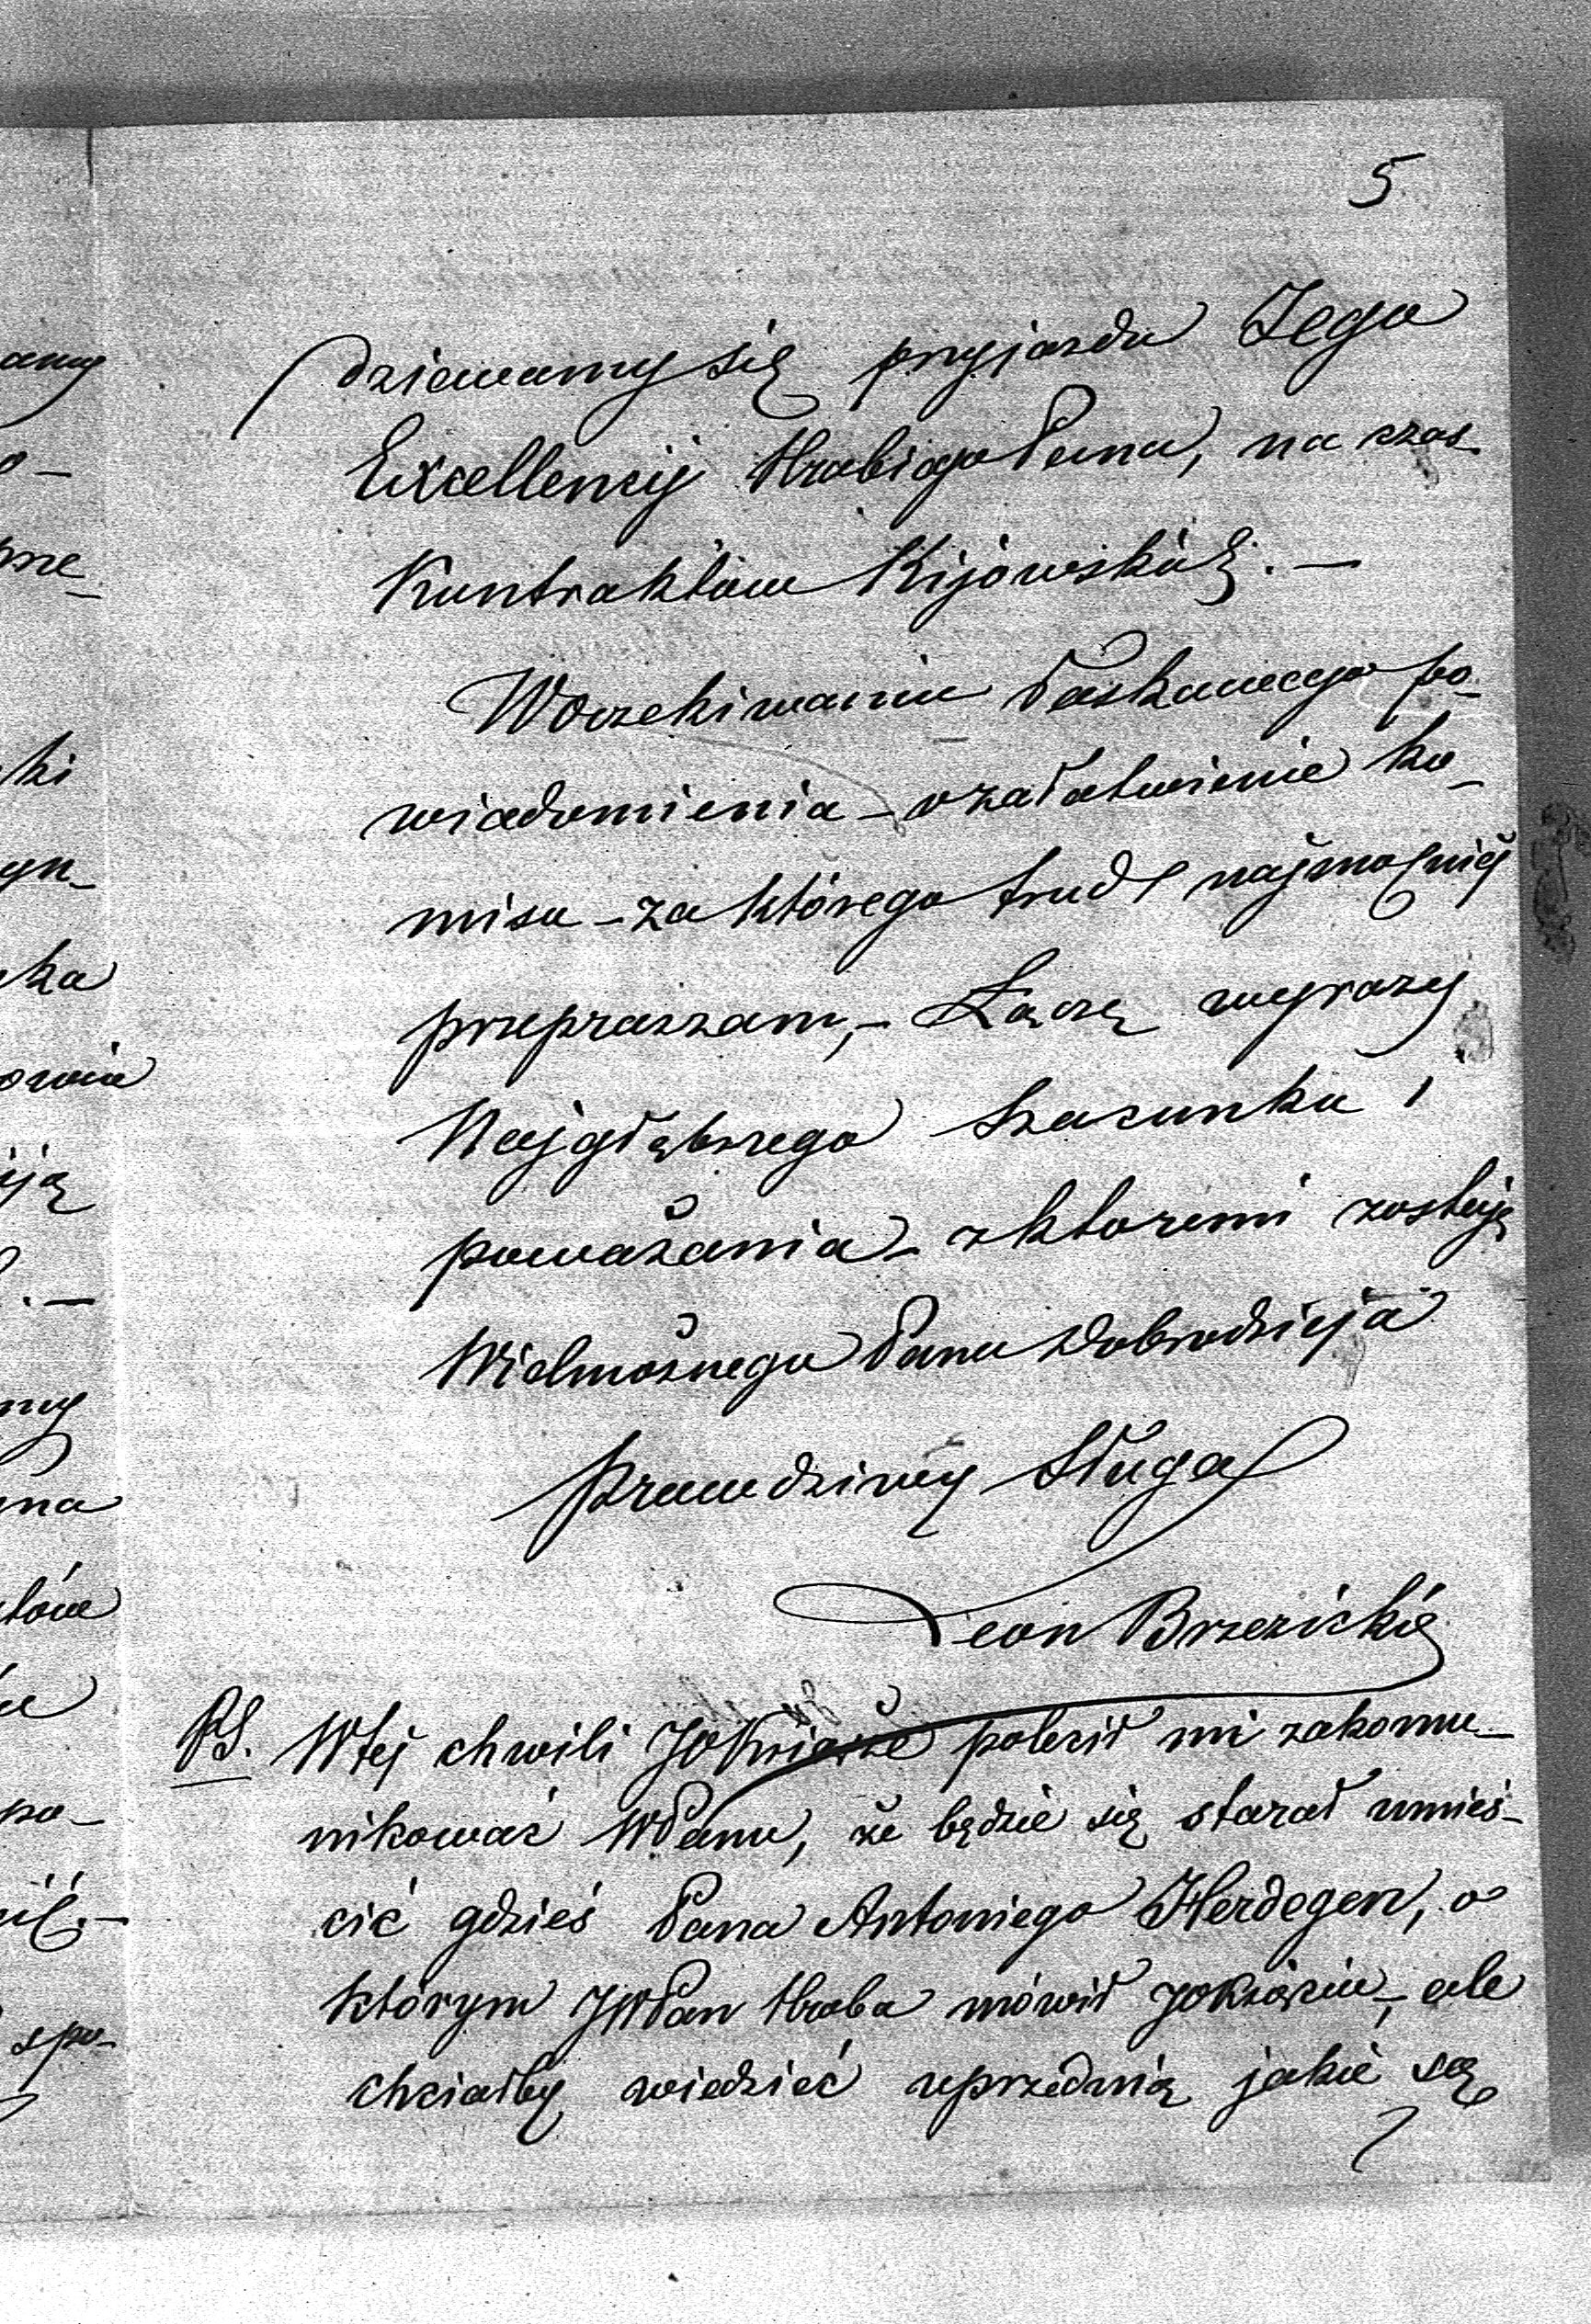 5
dziewamy się przyjazdu Jego
Excellencij Hrabiego Pana, na czas
Kontraktów Kijowskich. —
W oczekiwaniu Łaskawego po-
wiadomienia – o załatwienie ko-
misu – za którego trud najmocniej
przepraszam, – Łączę wyrazy
Najgłębszego Szacunku i
poważania – z ktoremi zostaję
Wielmożnego Pana Dobrodzieja
Prawdziwy Sługa
Leon Brzezicki
PS. W tej chwili JO Książe polecił mi zakomu-
nikować WPanu, że będzie się starał umieś-
cić gdzieś Pana Antoniego Herdegen, o
którym JWPan Hraba mówił JOKsięciu, – ale
chciałby wiedzieć uprzednią jakie są